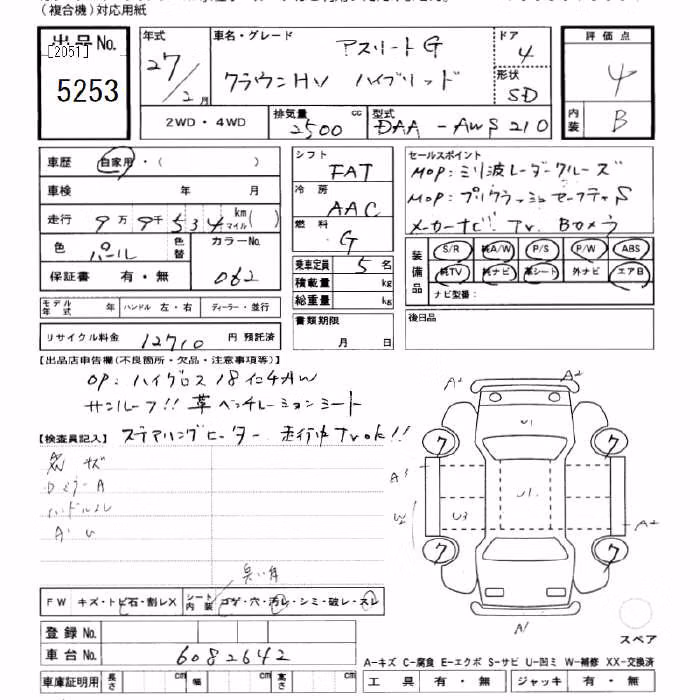 （複合機）対応用紙
出品No.
[2051]
5253
年式
27/2月
車名・グレード
アスリートG
クラウンHV ハイブリッド
ドア
4
形状
SD
評価点
4
内装
B
2WD・4WD
排気量
2500 cc
型式
DAA-AWS210
車歴 自家用・( )
車検 年 月
走行 9万9千534 km マイル( )
色 パール 色替 カラーNo. 062
保証書 有・無
シフト
FAT
冷房
AAC
燃料
G
乗車定員 5名
積載量 kg
総重量 kg
書類期限
月 日
セールスポイント
MOP:ミリ波レーダークルーズ
MOP:プリクラッシュセーフティS
メーカーナビ TV Bカメラ
装備品
S/R 純A/W P/S P/W ABS
純TV 純ナビ 革シート 外ナビ エアB
ナビ型番:
モデル年式 年 ハンドル 左・右 ディーラー・並行
リサイクル料金 12710円 預託済
後日品
【出品店申告欄(不良箇所・欠品・注意事項等)】
OP:ハイグロス18インチAW
サンルーフ!! 革ベンチレーションシート
【検査員記入】 ステアリングヒーター 走行中TVok!!
キズ
DミラーA
ハンドルスレ
A・U
臭い有
FW キズ・トビ石・割レX
シート内装 コゲ・穴・汚レ・シミ・破レ・スレ
登録No.
車台No. 6082642
車庫証明用 長さ cm 幅 cm 高さ cm
A2 A2
U1
7 7
A3
W2 U3 U1
A2
7 7
A1
スペア
A-キズ C-腐食 E-エクボ S-サビ U-凹ミ W-補修 XX-交換済
工具 有・無 ジャッキ 有・無